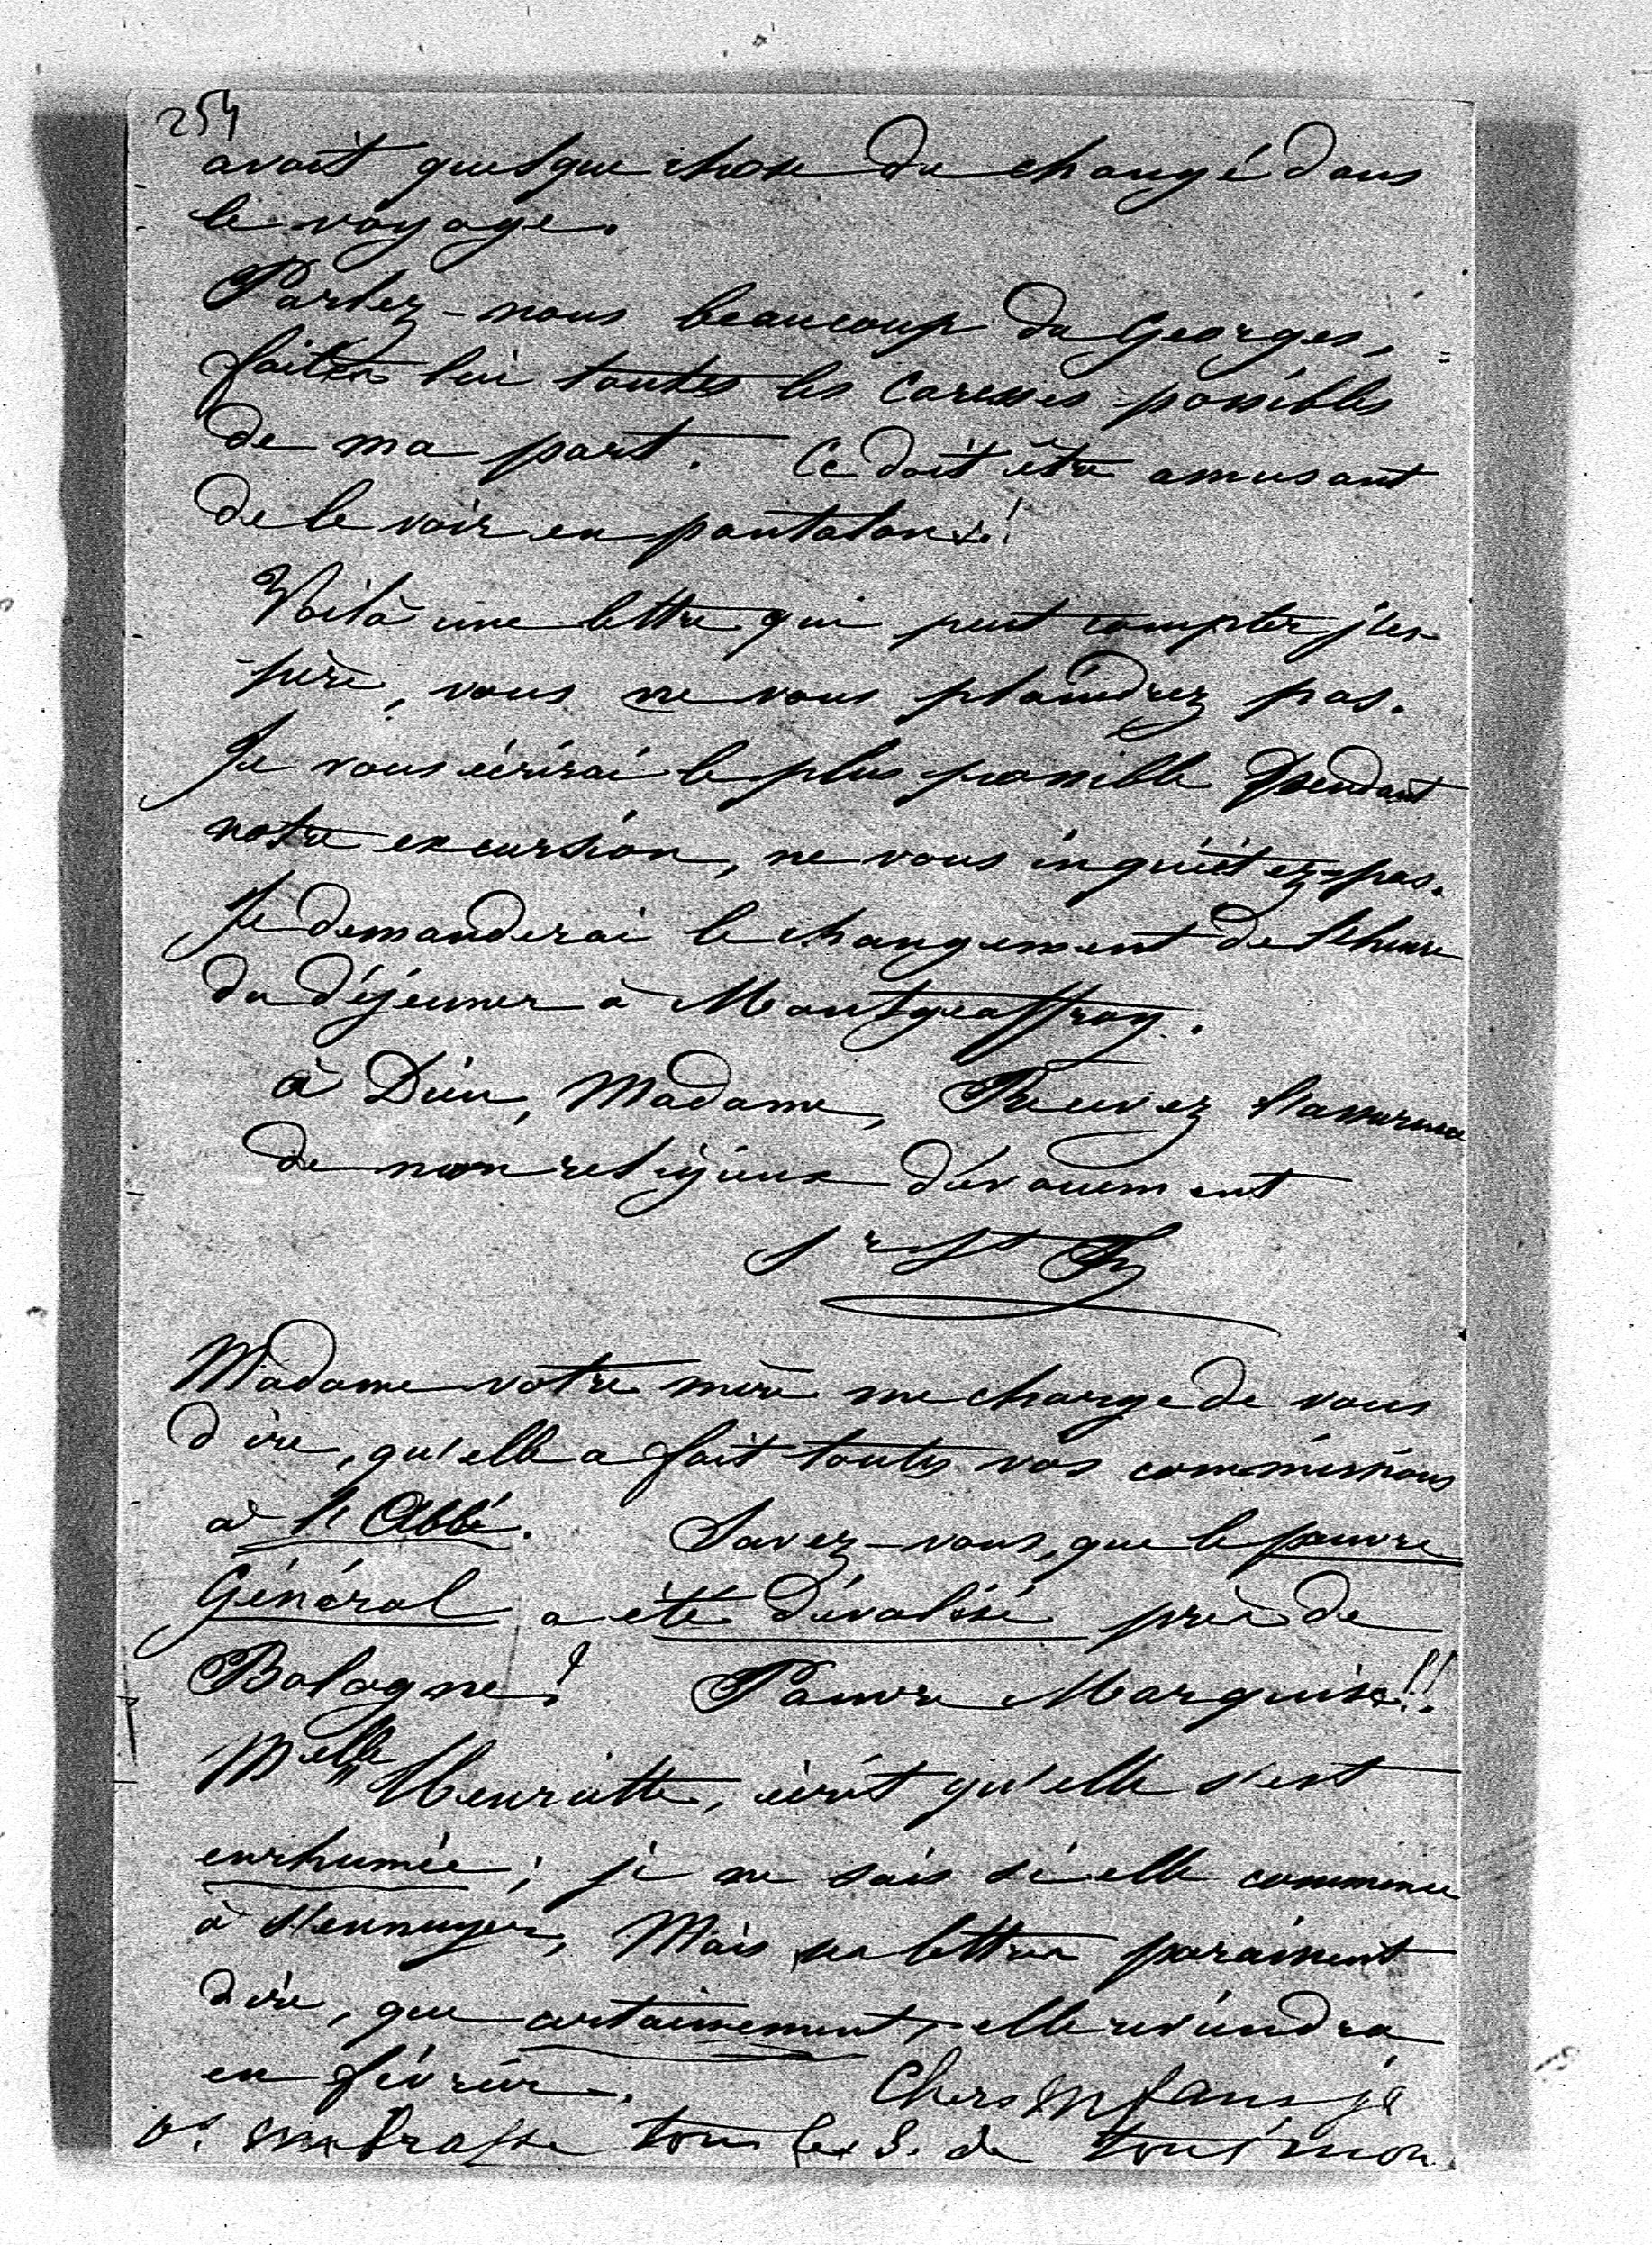 254
avait quelque chose de changé dans
le voyage.
Parlez-nous beaucoup de Georges,
faites lui toutes les caresses possibles
de ma part. Ce doit être amusant
de le voir en pantalons!
Voilà une lettre qui peut compter j'es-
père, vous ne vous plaindrez pas.
Je vous écrirai le plus possible pendant
notre excursion, ne vous inquiétez pas.
Je demanderai le changement de l'heure
du déjeuner à Montgeoffroy.
à Dieu, Madame, Recevez l'assurance
de mon religieux dévouement
Sr St
Madame votre mère me charge de vous
dire, qu'elle a fait toutes vos commissions
à l'Abbé. Savez-vous, que le pauvre
Général a été dévalisé près de
Bologne! Pauvre Marquise!!
Melle Henriette, écrit qu'elle s'est
enrhumée; je ne sais si elle commence
à s'ennuyer, Mais ses lettres paraissent
dire, que certainement, elle reviendra
en février. Chers Enfans je
vs embrasse tous les 3. de tout mon